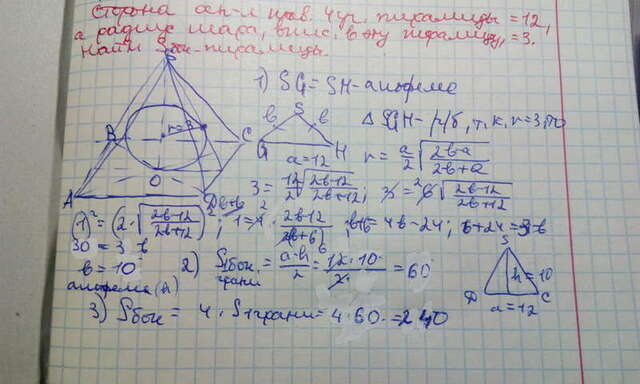 Сторона осн-я прав. 4уг. пирамиды = 12,
а радиус шара, впис. в эту пирамиду, = 3.
Найти Sбок. пирамиды.
1) SG = SH - апофема
S
B
r=3
C
A
O
D
S
b b
G H
a=12
Δ SGH - р/б, т.к. r=3, то
r = a/2 √(2b-a)/(2b+a)
3 = 12/2 √(2b-12)/(2b+12); 3 = 6 √(2b-12)/(2b+12)
(1)² = (2·√(2b-12)/(2b+12))²; 1 = 4 · (2b-12)/(2b+12) b+6 = 4b-24; 6+24 = 3b
30 = 3b
b = 10
апофема (h)
2) S1бок. грани = a·h/2 = 12·10/2 = 60
S
h=10
D C
a=12
3) Sбок = 4 · S1грани = 4·60 = 240